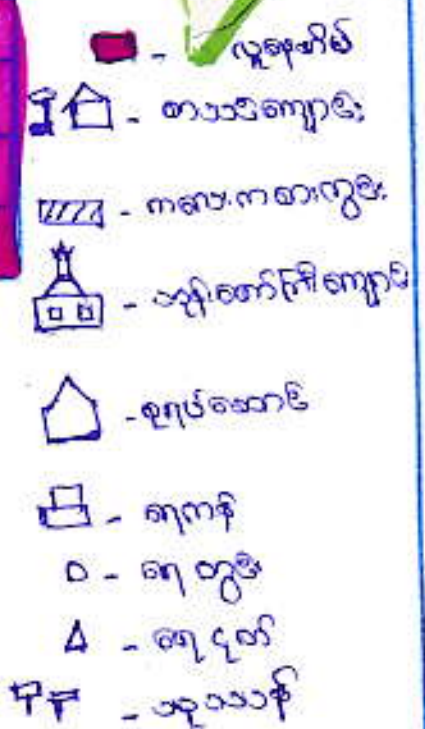 လူနေအိမ်
စာသင်ကျောင်း
ကလေးကစားကွင်း
ဘုန်းတော်ကြီးကျောင်း
စုရပ်ဆောင်
ရေကန်
ရေတွင်း
ရေငုတ်
သုသာန်